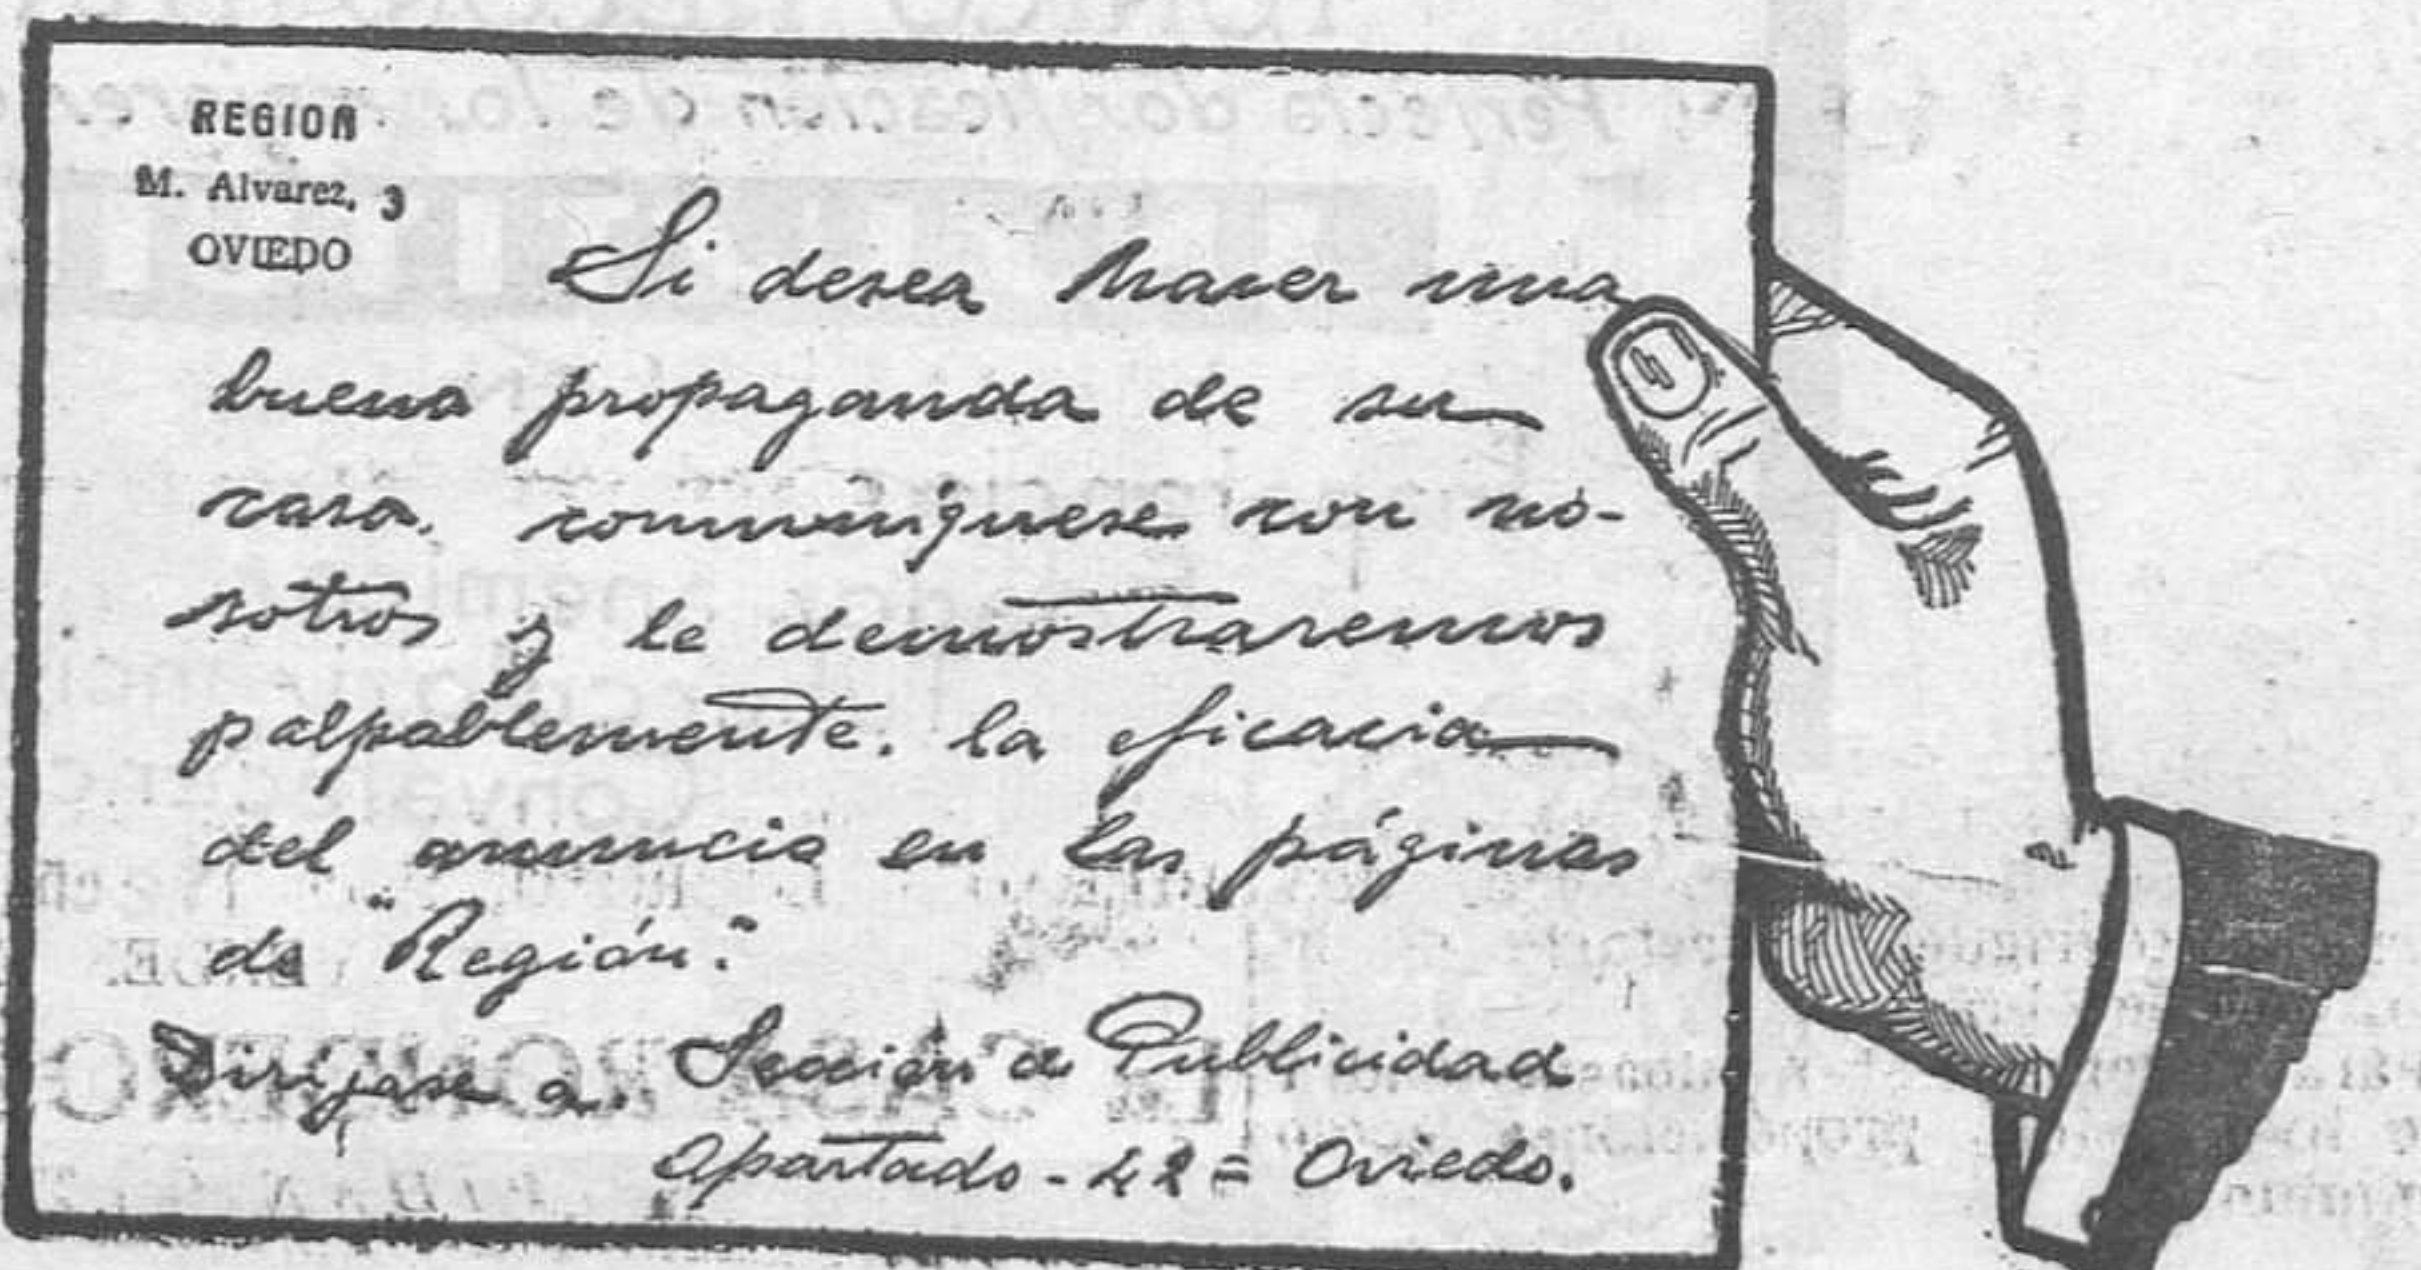 REGION
M. Alvarez, 3
OVIEDO
Si desea hacer una
buena propaganda de su
casa. comuniquese con no-
sotros y le demostraremos
palpablemente. la eficacia
del anuncio en las páginas
de "Región."
Dirijase a. Sección de Publicidad
Apartado - 42 = Oviedo.